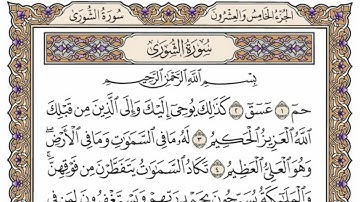 سُورَةُ الشُّورَىٰ
الجُزْءُ الخَامِسُ وَالعِشْرُونَ
سُورَةُ الشُّورَىٰ
بِسْمِ اللَّهِ الرَّحْمَٰنِ الرَّحِيمِ
حمٓ ١ عٓسٓقٓ ٢ كَذَٰلِكَ يُوحِيٓ إِلَيْكَ وَإِلَى ٱلَّذِينَ مِن قَبْلِكَ
ٱللَّهُ ٱلْعَزِيزُ ٱلْحَكِيمُ ٣ لَهُۥ مَا فِي ٱلسَّمَٰوَٰتِ وَمَا فِي ٱلْأَرْضِۖ
وَهُوَ ٱلْعَلِيُّ ٱلْعَظِيمُ ٤ تَكَادُ ٱلسَّمَٰوَٰتُ يَتَفَطَّرْنَ مِن فَوْقِهِنَّۚ
وَٱلْمَلَٰٓئِكَةُ يُسَبِّحُونَ بِحَمْدِ رَبِّهِمْ وَيَسْتَغْفِرُونَ لِمَن فِي